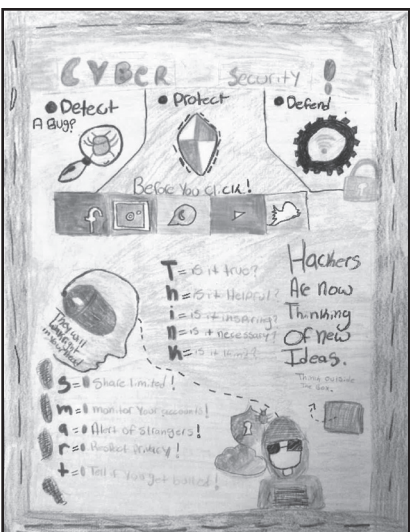 CYBER Security!
• Detect • Protect • Defend
A Bug?
Before You Click!
T = is it true?
h = is it Helpful?
i = is it insparing?
n = is it necessary?
k = is it kind?
Hackers
Are now
Thinking
Of new
Ideas.
Think outside
the box.
They will
your head
S = Share limited!
m = monitor Your accounts!
a = Alert of strangers!
r = Protect privacy!
t = Tell if you get bullied!